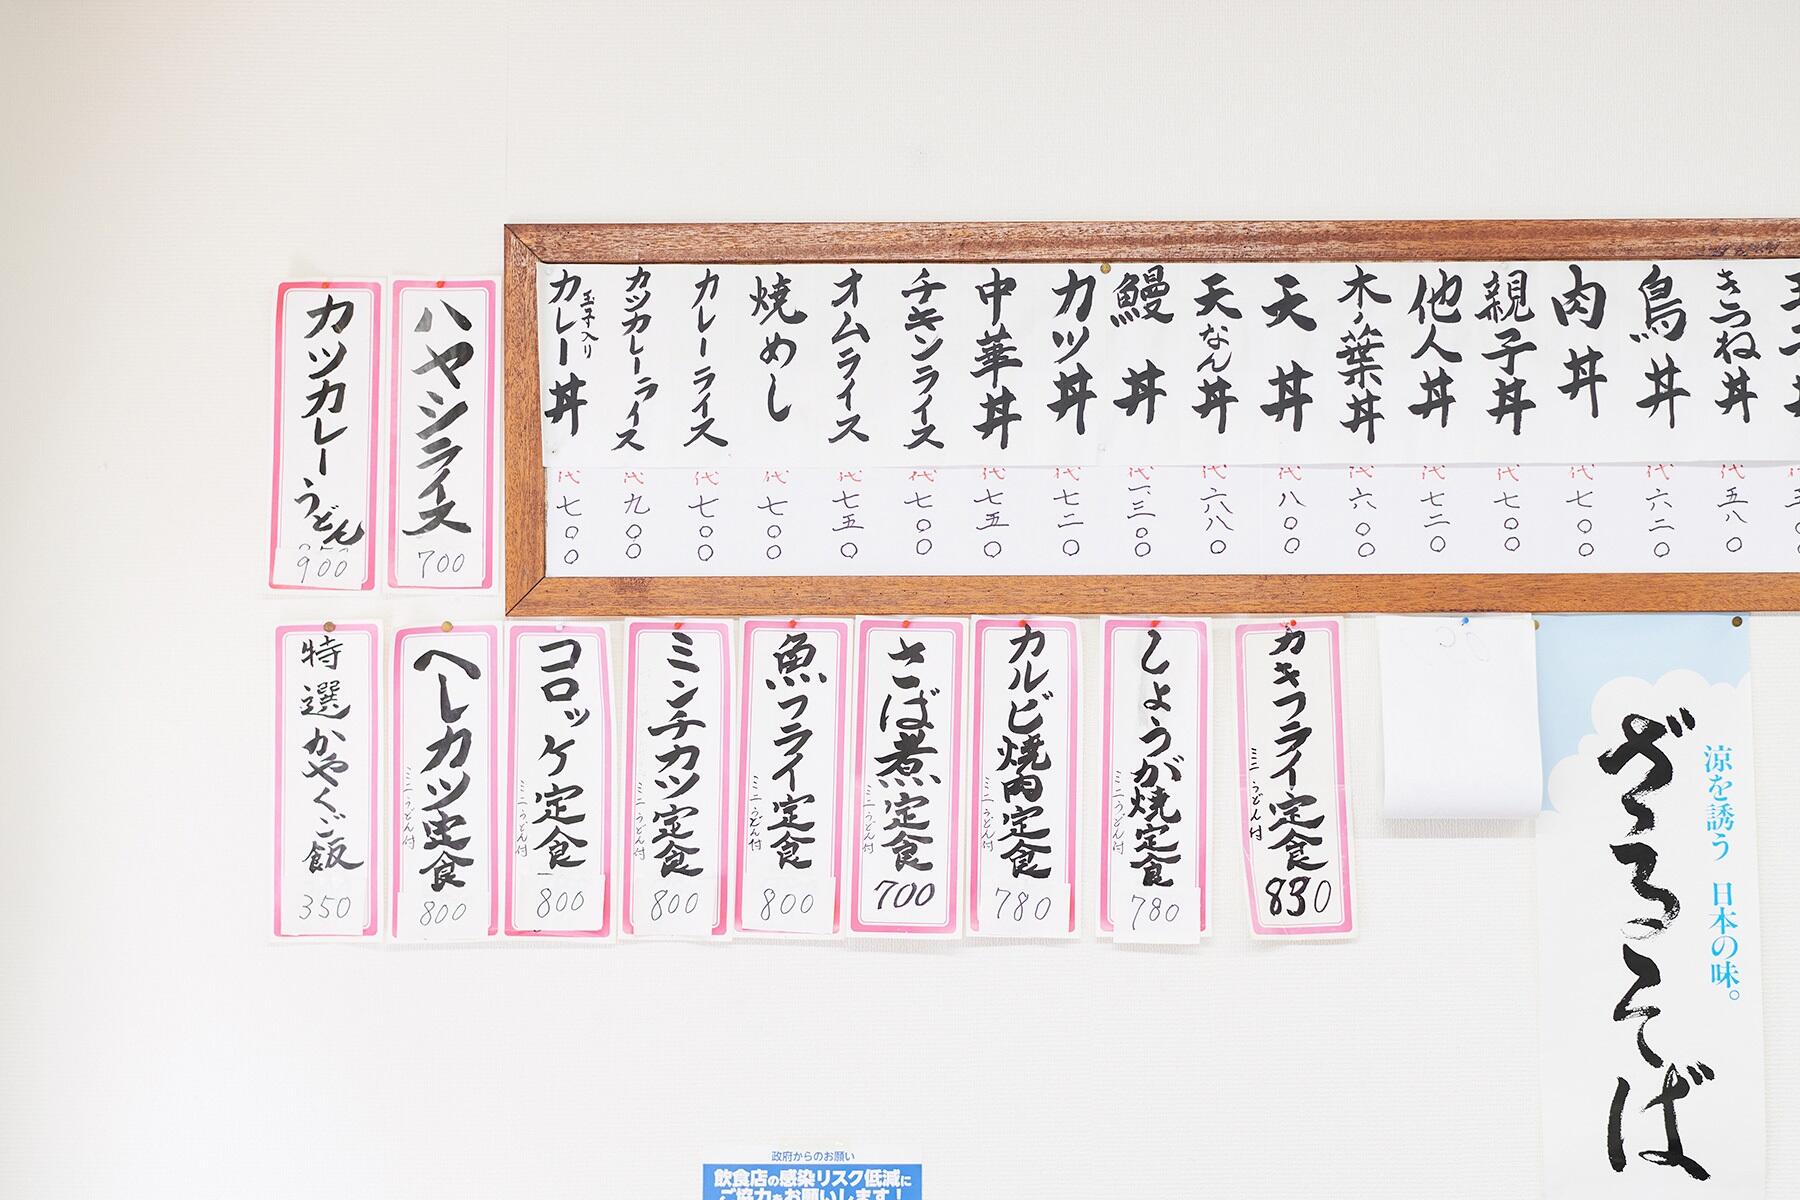 きつね丼
代 五八〇
鳥丼
代 六二〇
肉丼
代 七〇〇
親子丼
代 七〇〇
他人丼
代 七二〇
木ノ葉丼
代 六〇〇
天丼
代 八〇〇
天なん丼
代 六八〇
鰻丼
代 一、三〇〇
カツ丼
代 七二〇
中華丼
代 七五〇
チキンライス
代 七〇〇
オムライス
代 七五〇
焼めし
代 七〇〇
カレーライス
代 七〇〇
カツカレーライス
代 九〇〇
玉子入り
カレー丼
代 七〇〇
ハヤシライス
700
カツカレーうどん
900
カキフライ定食
ミニうどん付
830
しょうが焼定食
ミニうどん付
780
カルビ焼肉定食
ミニうどん付
780
さば煮定食
ミニうどん付
700
魚フライ定食
ミニうどん付
800
ミンチカツ定食
ミニうどん付
800
コロッケ定食
ミニうどん付
800
ヘレカツ定食
ミニうどん付
800
特選かやくご飯
350
涼を誘う 日本の味。
ざるそば
政府からのお願い
飲食店の感染リスク低減に
ご協力をお願いします!